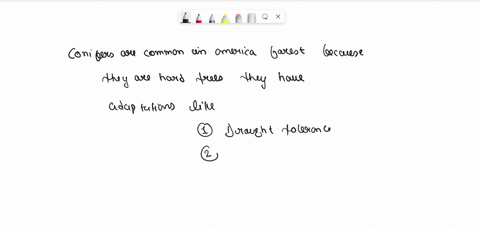 Conifers are common ain america forest because
they are hard trees they have
adaptations like
① Draught tolerance
②